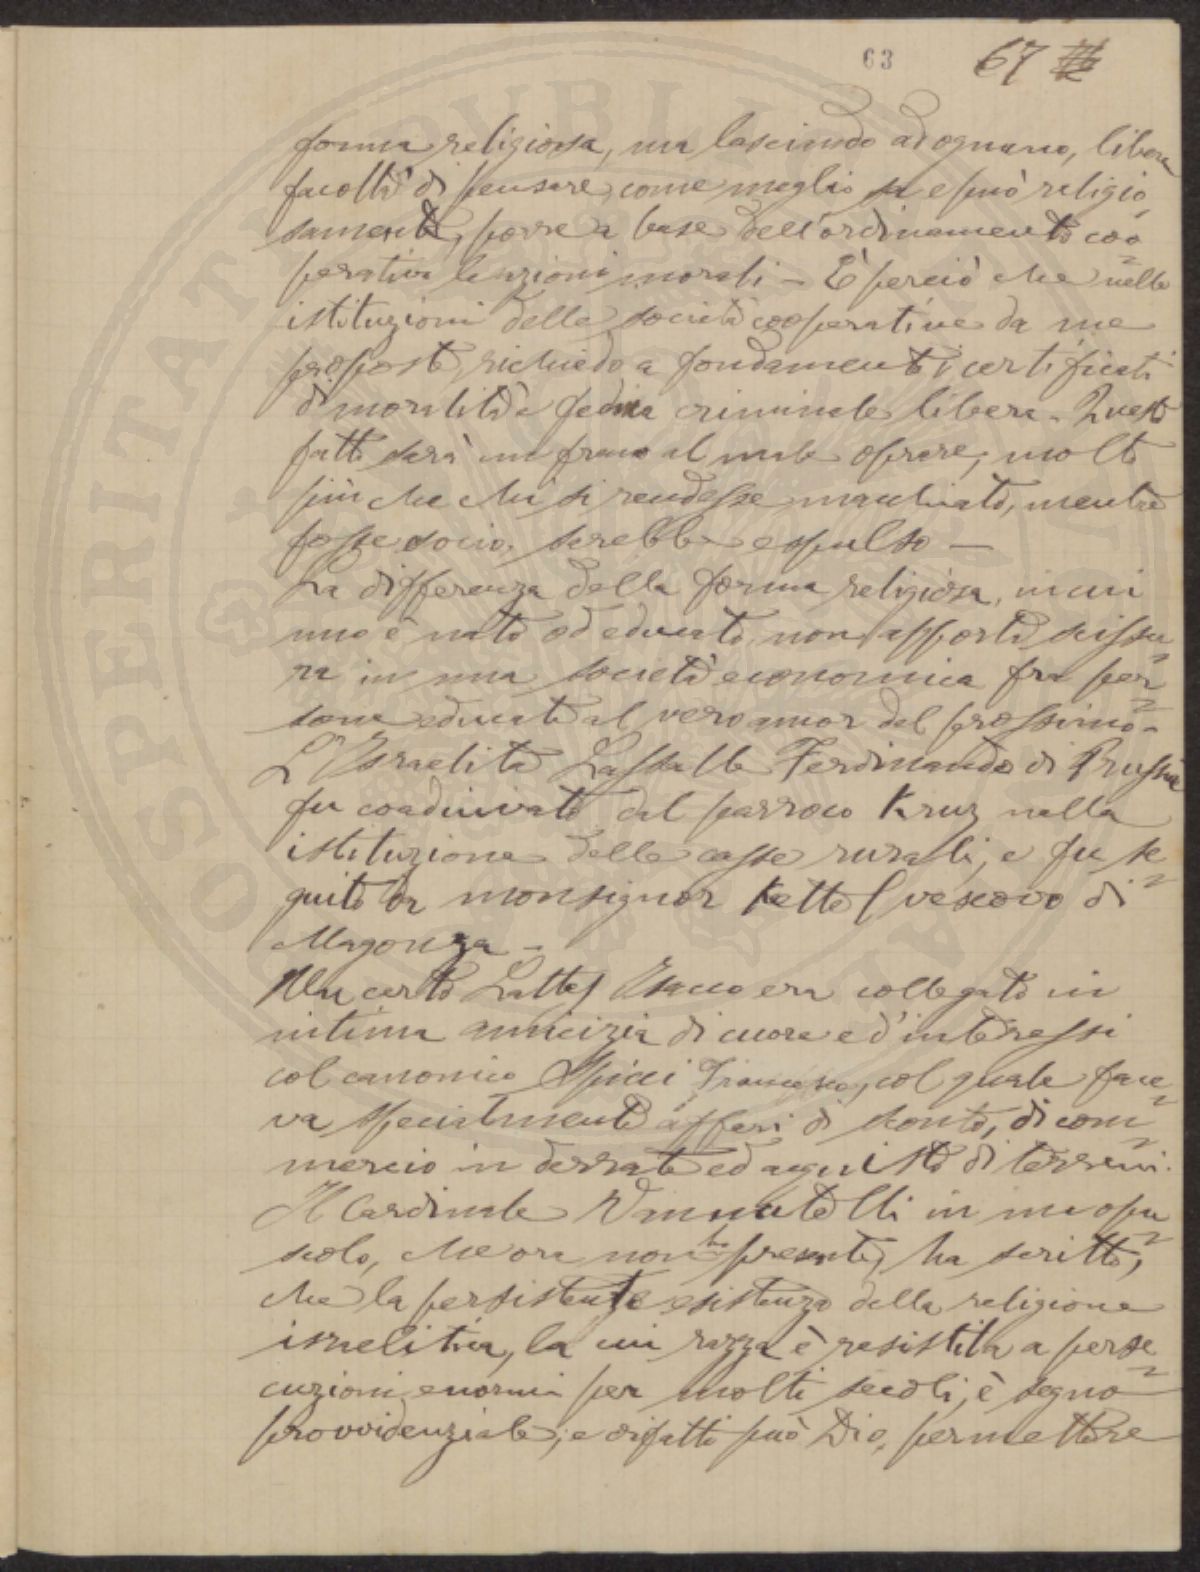 63 67
forma religiosa, ma lasciando ad ognuno, libera
facoltà di pensare, come meglio sa e può religio
samente, porre a base dell'ordinamento coo
perativo le azioni morali – È perciò che nelle
istituzioni delle società cooperative da me
proposte, richiedo a fondamento i certificati
di moralità e fedina criminale libera. Questo
fatto sarà un freno al male oprare, molto
più che chi si rendesse macchiato, mentre
fosse socio, sarebbe espulso –
La differenza della forma religiosa, in cui
uno è nato od educato, non apporta scissu
ra in una società economica fra per
sone educate al vero amor del prossimo –
L'Israelita Lassalle Ferdinando di Prussia
fu coadiuvato dal parroco Kruz nella
istituzione delle casse rurali, e fu se
guito da monsignor Kettel vescovo di
Magonza –
Un certo Lattes Isacco era collegato in
intima amicizia di cuore e d'interessi
col canonico Spicci Francesco, col quale face
va specialmente affari di sconto, di com
mercio in derrate ed acquisto di terreni.
Il Cardinale Vannutelli in un opu
scolo, che ora non ho presente, ha scritto,
che la persistente esistenza della religione
israelitica, la cui razza è resistita a perse
cuzioni enormi per molti secoli, è segno
provvidenziale; e difatti può Dio, permettere
SOSPERITATI PUBLI